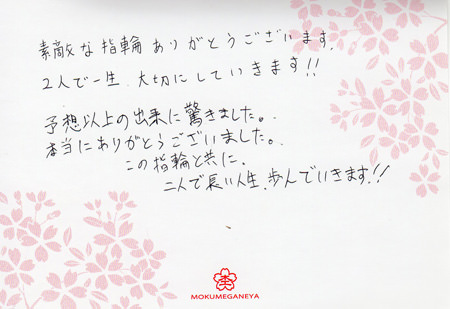 素敵な指輪ありがとうございます。
2人で一生、大切にしていきます!!
予想以上の出来に驚きました。
本当にありがとうございました。
この指輪と共に、
二人で長い人生、歩んでいきます!!
MOKUMEGANEYA